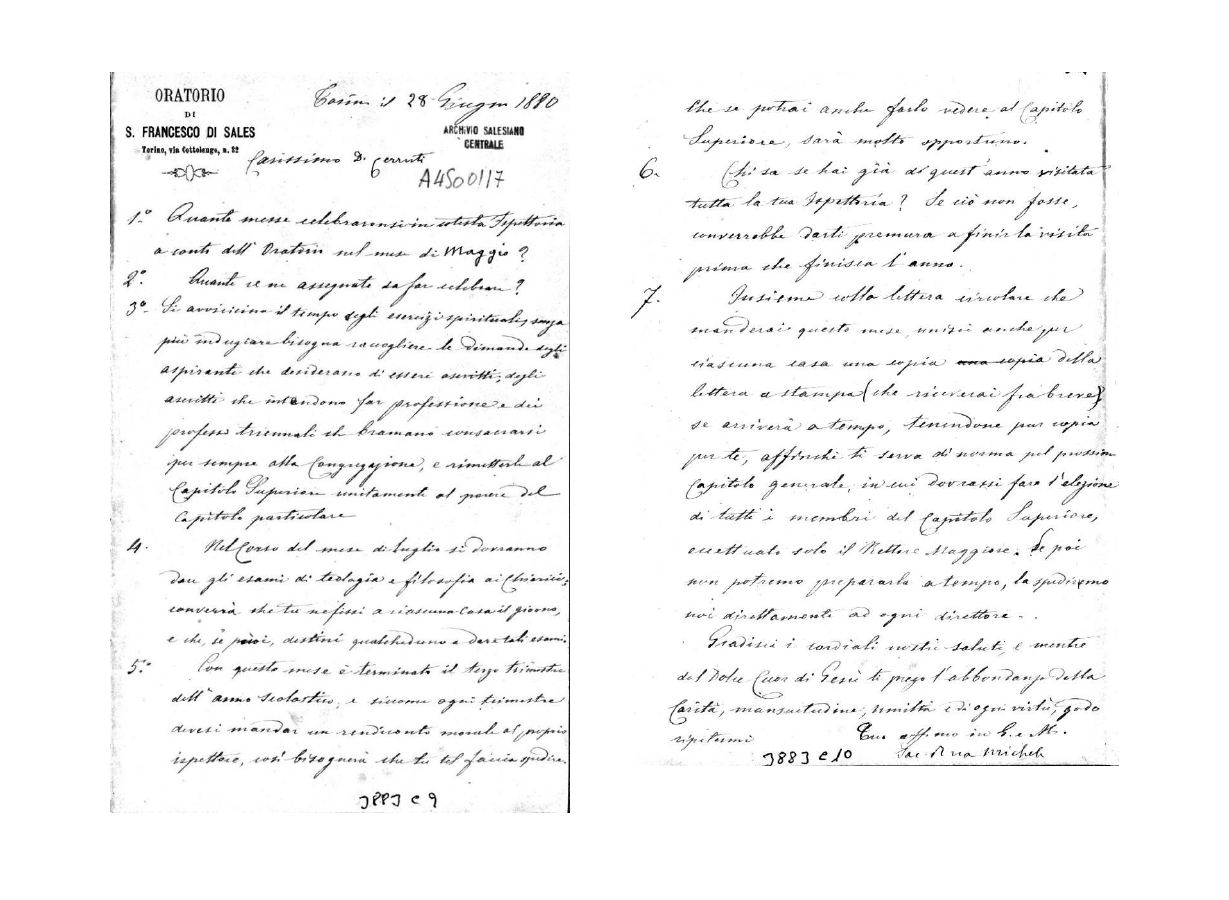 ORATORIO
DI
S. FRANCESCO DI SALES
Torino, via Cottolengo, n. 32
Torino il 28 Giugno 1880
ARCHIVIO SALESIANO
CENTRALE
Carissimo D. Cerruti
A4500117
1.° Quante messe celebraronsi in cotesta Ispettoria
a conto dell' Oratorio nel mese di Maggio?
2.° Quante ne assegnate da far celebrare?
3.° Si avvicina il tempo degli esercizi spirituali, senza
più indugiare bisogna raccogliere le dimande degli
aspiranti che desiderano di essere ascritti, degli
ascritti che intendono far professione e dei
professi triennali che bramano consacrarsi
per sempre alla Congregazione, e rimetterle al
Capitolo Superiore unitamente al parere del
Capitolo particolare
4. Nel Corso del mese di luglio si dovranno
dare gli esami di teologia e filosofia ai Chierici;
converrà che tu ne fissi a ciascuna Casa il giorno,
e che, se puoi, destini qualcheduno a dare tali esami.
5.° Con questo mese è terminato il terzo trimestre
dell' anno scolastico, e siccome ogni trimestre
devesi mandar un rendiconto morale al proprio
ispettore, così bisognerà che tu tel faccia spedire.
J883 C 9
Che se potrai anche farlo vedere al Capitolo
Superiore, sarà molto opportuno.
6. Chi sa se hai già di quest' anno visitata
tutta la tua Ispettoria? Se ciò non fosse,
converrebbe darti premura a finir la visita
prima che finisca l'anno.
7. Insieme colla lettera circolare che
manderai questo mese unisci anche per
ciascuna casa una copia una copia della
lettera a stampa (che riceverai fra breve)
se arriverà a tempo, tenendone pur copia
per te, affinchè ti serva di norma pel prossimo
Capitolo generale, in cui dovrassi fare l'elezione
di tutti i membri del Capitolo Superiore,
eccettuato solo il Rettore Maggiore. Se poi
non potremo prepararla a tempo, la spediremo
noi direttamente ad ogni direttore.
Gradisci i cordiali nostri saluti, e mentre
dal Dolce Cuor di Gesù ti prego l'abbondanza della
Carità, mansuetudine, umiltà e di ogni virtù, godo
ripetermi
Tuo aff.mo in G. e M.
Sac. Rua Michele
J883 C 10